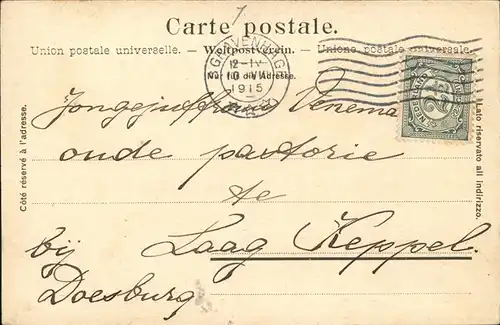 7
Carte postale.
Union postale universelle. – Weltpostverein. – Unione postale universale.
'S GRAVENHAGE
12-IV
1915
Nur für die Adresse.
NEDERLAND
2½
Jongejuffrouw Venema
oude pastorie
te
Laag Keppel.
bij
Doesburg
Côté réservé à l'adresse.
Lato riservato all indirizzo.